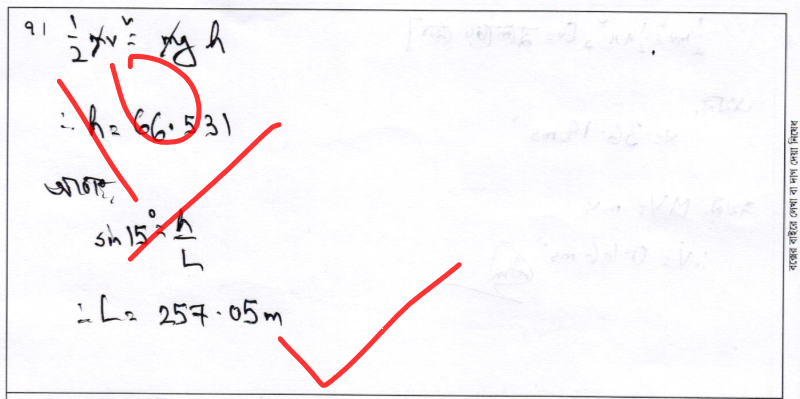 ৭১ ½ mv² = mg h
∴ h = 66.531
আবার,
sin 15° = h/L
∴ L = 257.05m
বক্সের বাইরে লেখা বা দাগ দেয়া নিষেধ